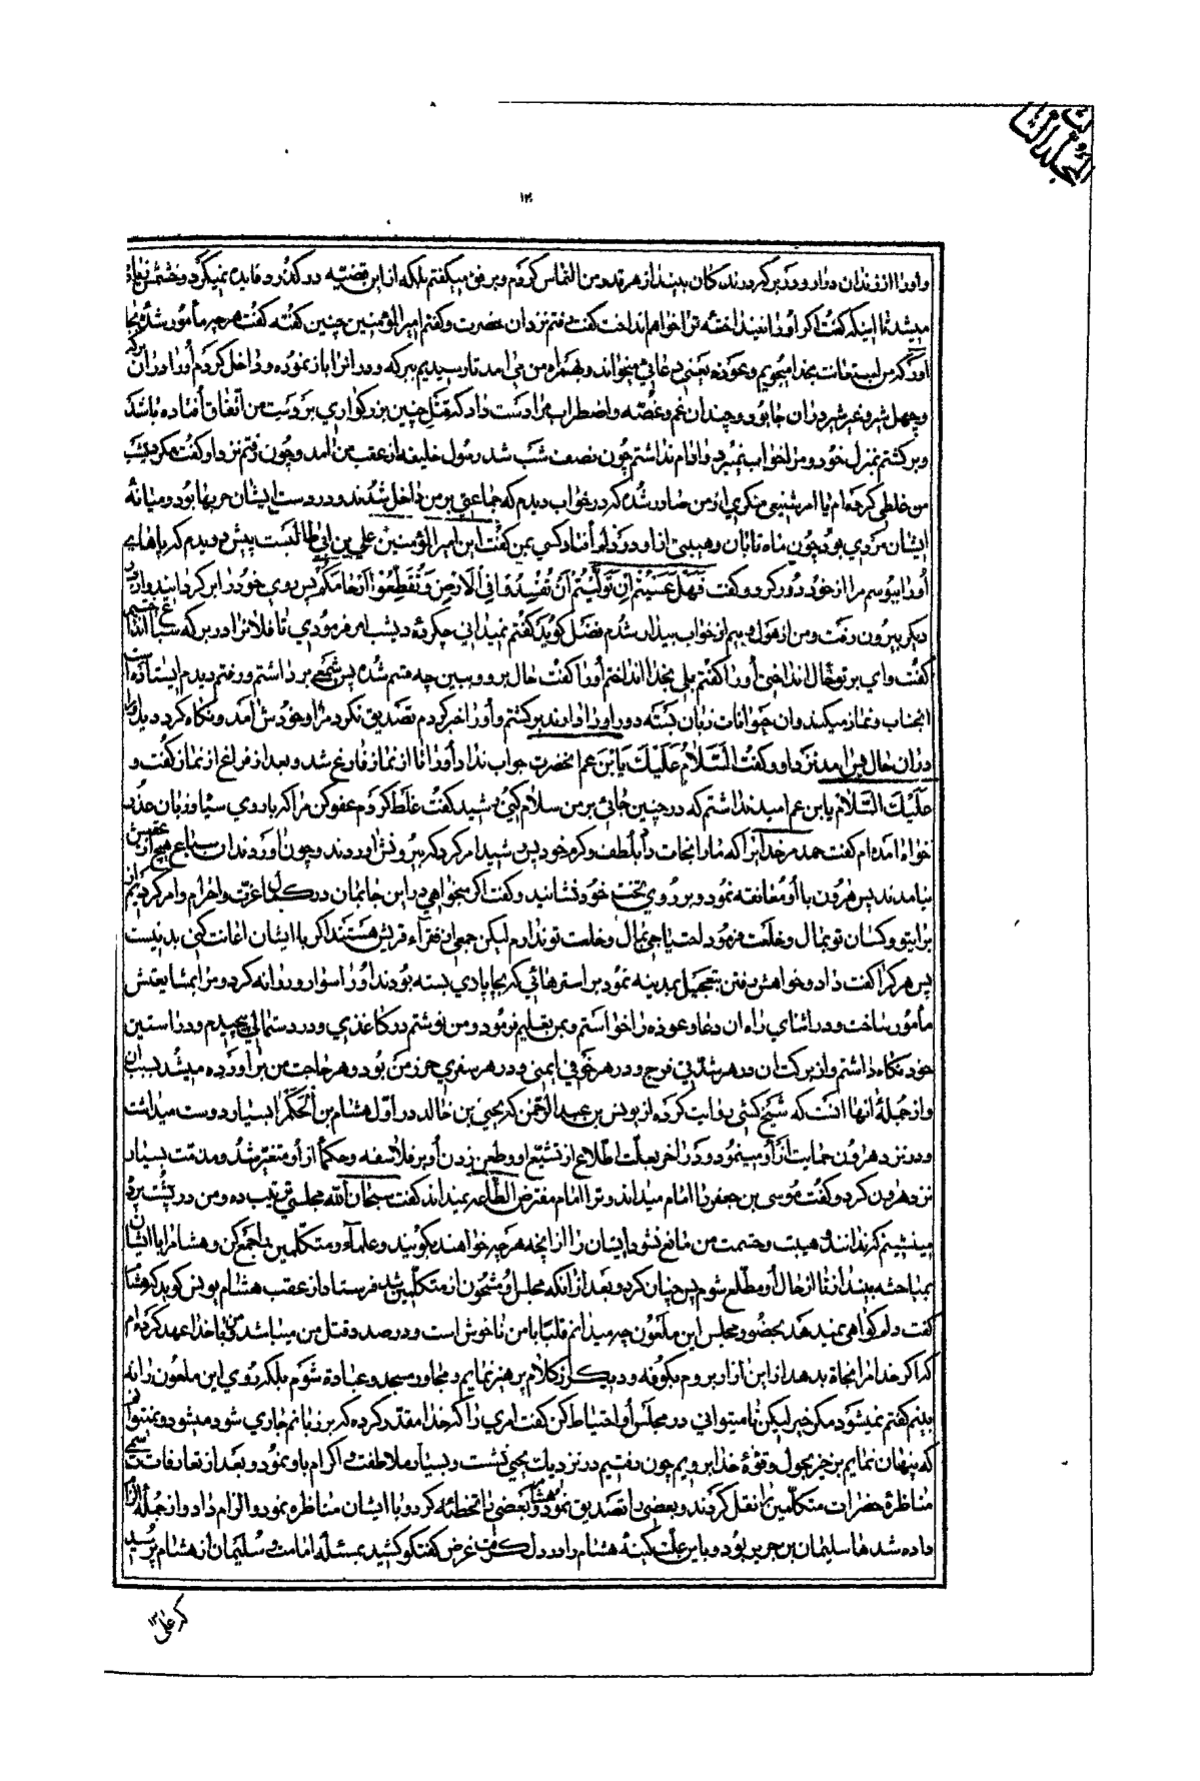 المجلد الثالث
۱۲
و او را از فرزندان دوار و در بر کردند کان ببینند از هر قدر من التماس کردم و بر فق میگفتم بلکه از این قضیه در گذرد فایده نمیکرد و خشمش زیاده
میشد تا اینکه گفت اگر او را نیندا خته ترا خواهم انداخت گفت رفتم نزد ان حضرت و گفتم امیر المؤمنین چنین گفته گفت هر چه مأمور شدۀ بجا
اور که من استعانت بخدا میجویم و عوذه یعنی دعائی میخواند و بهمراه من می امد تا رسیدیم ببرکه و در انرا باز نموده و داخل کردم او را در ان برکه
و چهل شیر و غیر شیر در ان جا بود و چندان غم و غصّه و اضطراب مرا دست داد که قتل چنین بزرگواری بر دست من اتفاق افتاده باشد
و برگشتم بمنزل خود و مرا خواب نمیبرد و ارام نداشتم چون نصف شب شد رسول خلیفه از عقب من امد و چون رفتم نزد او گفت مگر دیشب
من غلطی کرده‌ام یا امر شنیعی منکری از من صادر شده که در خواب دیدم که جماعتی بر من داخل شدند و در دست ایشان حربها بود و میانۀ
ایشان مردی بود چون ماه تابان و هیبتی از او در دلم افتاد کسی بمن گفت این امیر المؤمنین علی بن ابی طالبست پیش دویدم که پاهای
او را ببوسم مرا از خود دور کرد و گفت فَهَلْ عَسَيْتُمْ اِنْ تَوَلَّيْتُمْ اَنْ تُفْسِدُوا فِي الْاَرْضِ وَ تُقَطِّعُوْا اَرْحامَكُمْ پس روی خود را بر گردانید و از در
دیگر بیرون رفت و من از هول و بیم از خواب بیدار شدم فضل گوید گفتم نمیدانی چکردۀ دیشب امر فرمودی تا فلان را در برکه سباع اندا ختیم
گفت وای بر تو حال انداختی او را گفتم بلی بخدا انداختم او را گفت حال برو و ببین چه قسم شده پس شمعی برداشتم و رفتم دیدم ایستاده است
انجناب و نماز میکند و ان حیوانات زبان بسته دور او را دارند برگشتم و او را خبر کردم تصدیق نکرد مرا و خودش امد و نگاه کرد دید او را
در ان حال پس امد نزد او و گفت السَّلامُ عَلَيْكَ يَا بْنَ عم انحضرت جواب نداد او را تا از نماز فارغ شد و بعد از فراغ از نماز گفت و
عَلَيْكَ السَّلامُ یا بن عم امید نداشتم که در چنین جائی بر من سلام کنی رشید گفت غلط کردم عفو کن مرا که با روی سیاه و زبان عذر
خواه امده‌ام گفت حمد مر خدایرا که ما را نجات داد بلطف و کرم خود پس رشید امر کرد که بیرونش اوردند و چون اوردند ان سباع هیچ از عقبش
نیامدند پس هرون با او معانقه نمود و بر روی تخت خود نشانید و گفت اگر میخواهی در این جا بمان در کمال عزت و احترام و امر کرده‌ایم
برای تو و کسان تو بمال و خلعت فرمود احتیاجی بمال و خلعت تو ندارم لیکن جمعی از فقرآء قریش هستند اگر با ایشان اعانت کنی بد نیست
پس هر که را گفت داد و خواهش رفتن بتعجیل بمدینه نمود بر استرهائی که بجاپاری بسته بودند او را سوار و روانه کرد و مرا بمشایعتش
مأمور ساخت و در اثنای راه ان دعا و عوذه را خواستم و بمن تعلیم فرمود و من نوشتم در کاغذی و در دستمالی پیچیدم و در استین
خود نگاه داشتم و از برکت ان در هر شدتی فرج و در هر خوفی ایمنی و در هر سفری حرز من بود و هر حاجت من بر اورده میشد بسبب ان
و از جملۀ انها انست که شیخ کشی روایت کرده از یونس بن عبد الرحمن که یحیی بن خالد در اول هشام بن الحکم را بسیار دوست میداشت
و در نزد هرون حمایت از او مینمود و در اخر بعلت اطلاع از تشیع او و طعن زدن او بر فلاسفه و حکما از او متغیر شد و مذمت بسیار
نزد هرون کرد و گفت موسی بن جعفر را امام میداند و ترا امام مفترض الطاعه نمیداند گفت سبحان الله مجلسی ترتیب ده و من در پشت پرده
مینشینم که ندانند و هیبت و حشمت من مانع نشود ایشان را از انچه هر چه خواهند بگویند و علمآء و متکلمین را جمع کن و هشام را با ایشان
بمباحثه بینداز تا از حال او مطلع شوم پس چنان کرد و بعد از انکه مجلس او مشحون از متکلمین شد فرستاد از عقب هشام یونس گوید که هشام
گفت دلم گواهی نمیدهد بحضور مجلس این ملعون چه میدانم قلبا با من ناخوش است و در صدد قتل من میباشد من با خدا عهد کرده‌ام
که اگر خدا مرا نجاة بدهد از این ازار بروم بکوفه و دیگر از کلام پرهیز نمایم و مجاور مسجد و عبادة شوم بلکه روی این ملعون را نه
بینم گفتم نمیشود مگر خیر لیکن تا میتوانی در مجلس او احتیاط کن گفت امری را که خدا مقدر کرده که بر زبانم جاری شود میشود و نمیتوانم
که پنهان نمایم بر خیز بحول و قوۀ خدا برویم چون رفتیم در نزدیک یحیی نشست و بسیار ملاطفت و اکرام باو نمود و بعد از تعارفات رسمی
مناظرۀ حضرات متکلمین را نقل کردند و بعضی را تصدیق نمود هشام و بعضی را تخطئه کرد و با ایشان مناظره نمود و الزام داد و از جملۀ الزام
داده شد ها سلیمان بن حریر بود و باین علت کینۀ هشام را در دل گرفت غرض گفتگو کشید بمسئلۀ امامت سلیمان از هشام پرسید
که علی ۱۲